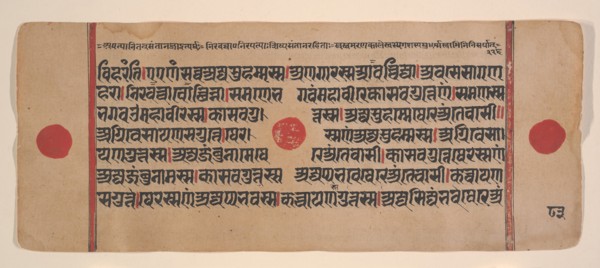 विहरंति।एएणंसव्वेअज्जसुहम्मस्स।अणगारस्सआवच्चिज्जा।अवसेसागण
हरा।निरवच्चावोच्छिन्ना।समणेभगवंमहावीरेकासवगुत्तेणं।समणस्स
णंभगवउमहावीरस्स।कासवगुत्तस्स।अज्जसुहम्मेथेरेअंतेवासी॥
अग्गिवेसायणसगुत्ते।थेरास्सणंअज्जसुहम्मस्स।अग्गिवेसा
यणगुत्तस्स।अज्जजंबुनामेथेरेअंतेवासी।कासवगुत्तेथेरस्सणं
अज्जजंबुनामस्स।कासवगुत्तस्सअज्जप्पभवेथेरेअंतेवासी।कच्चायण
सगुत्ते।थेरस्सणंअज्जप्पभवस्स।कच्चायणगुत्तस्स।अज्जसिज्जंभवेथेरेअं
८३